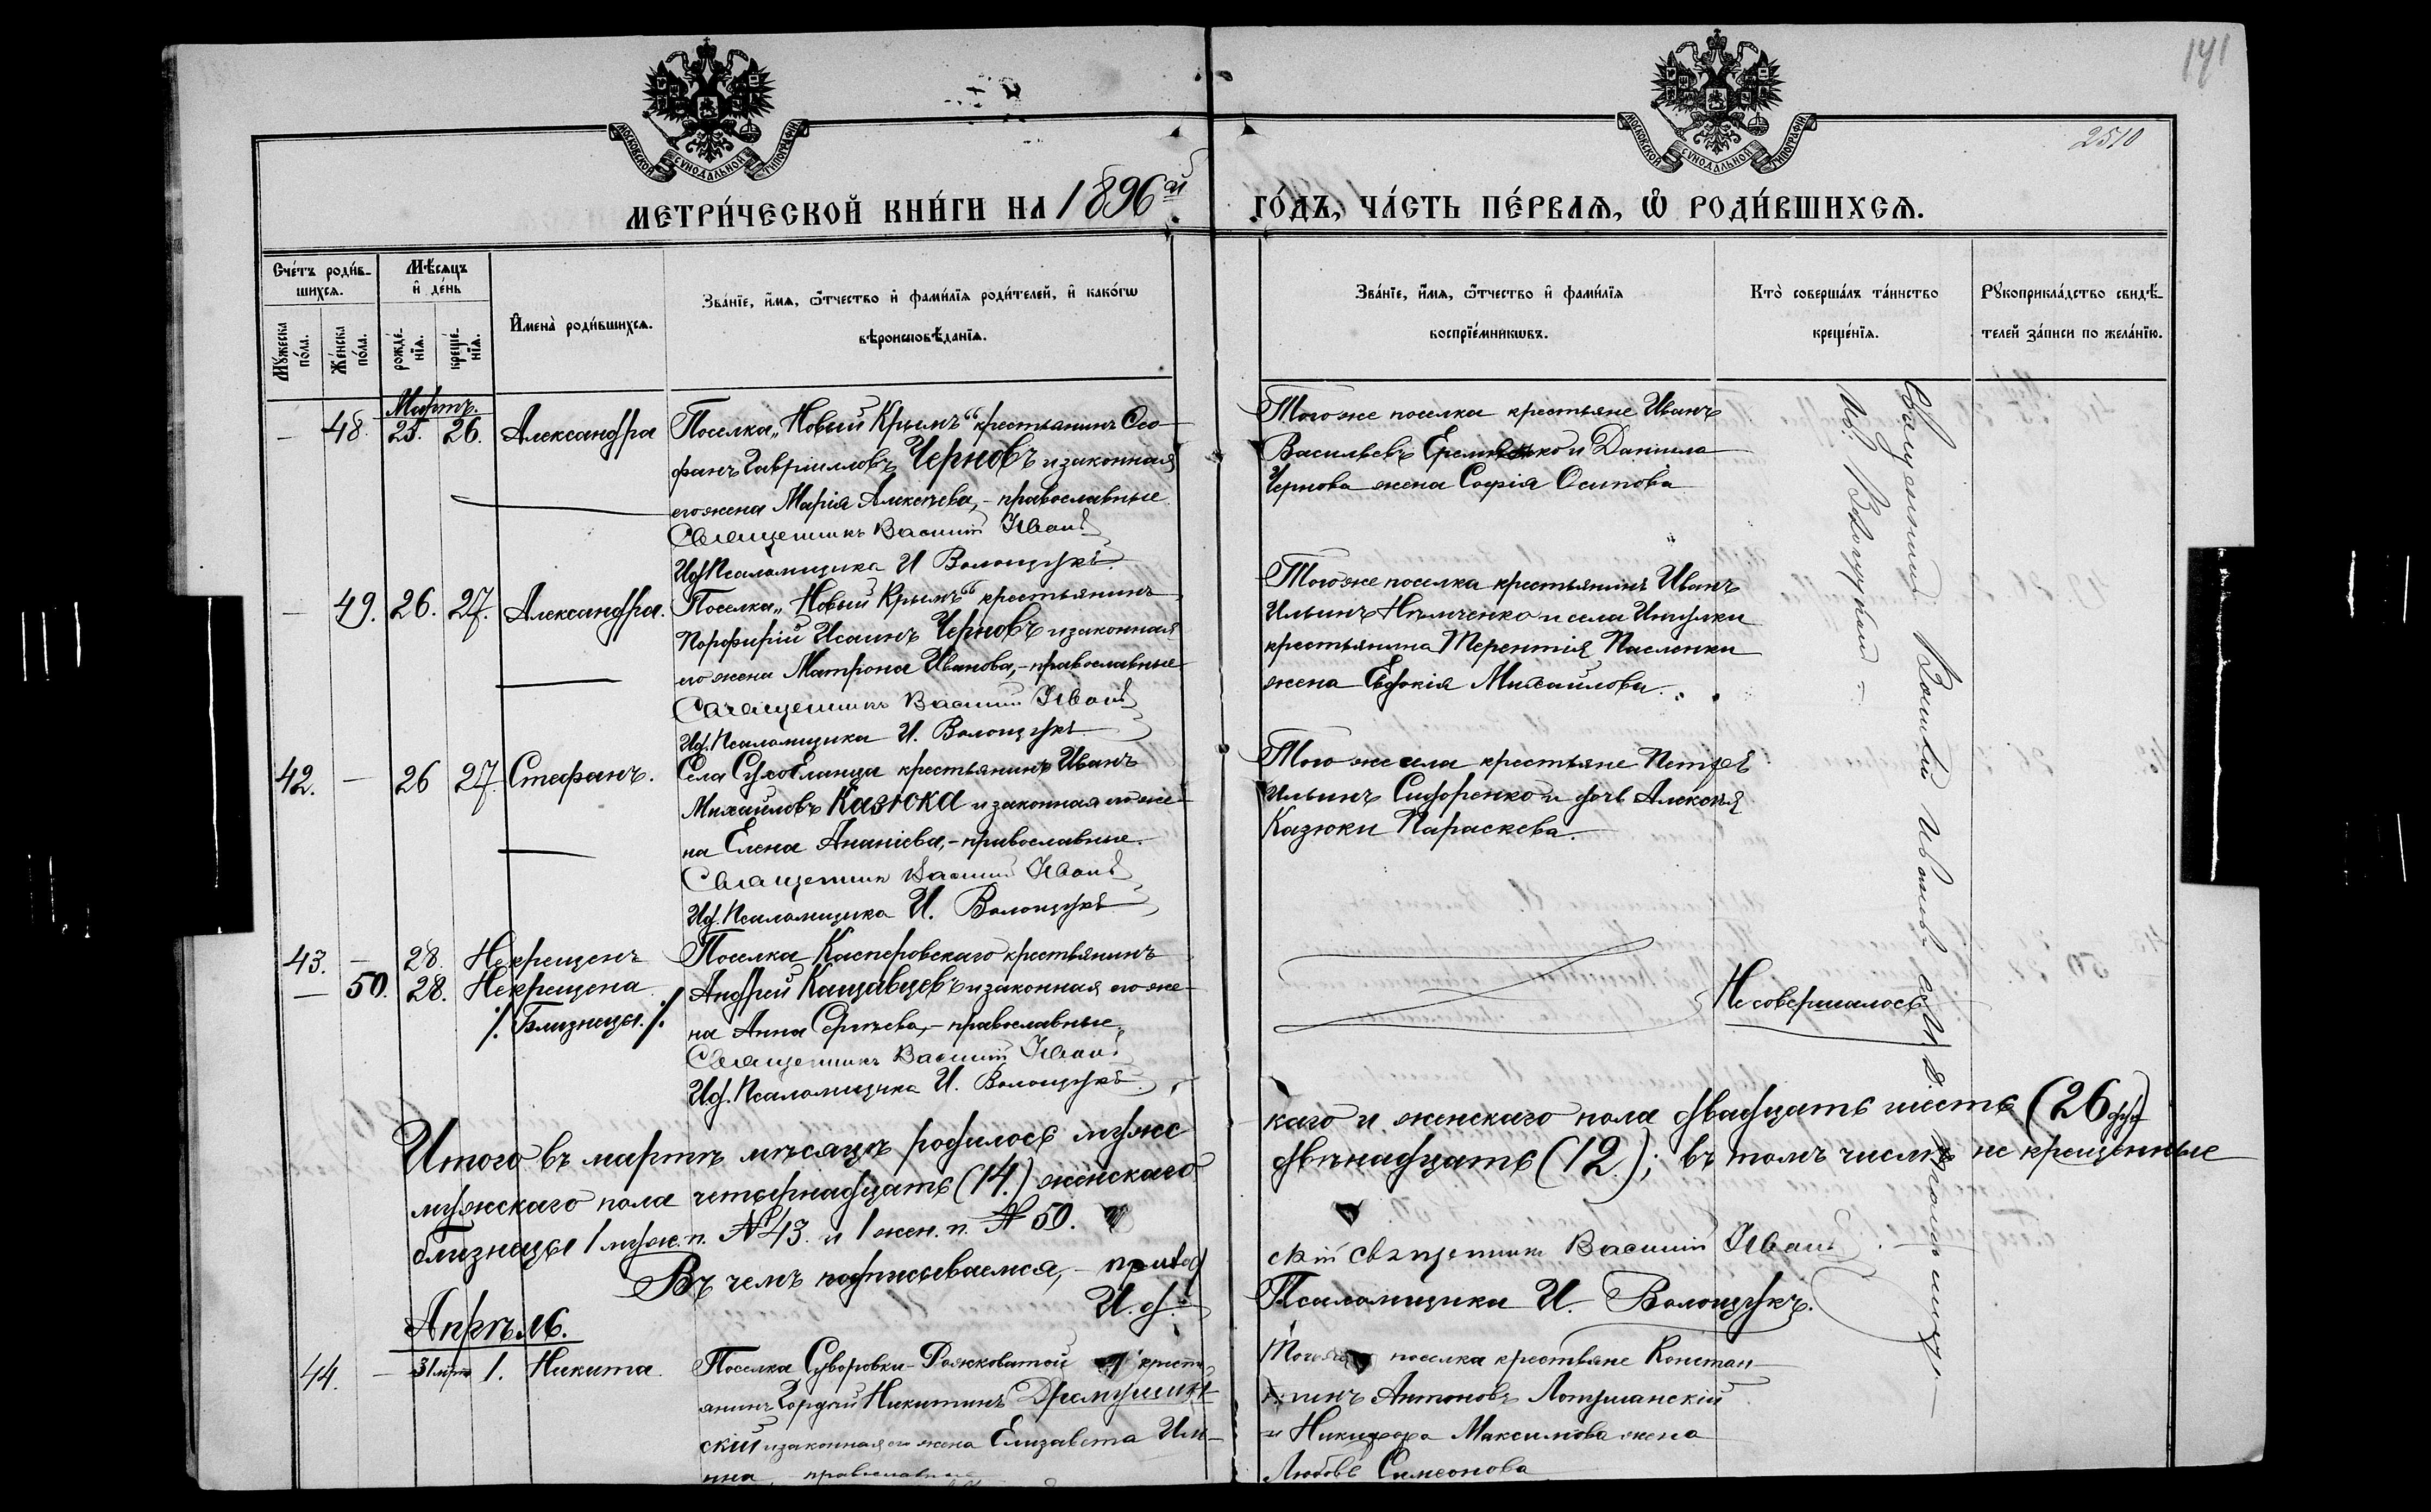 141
2510
МОСКОВСКОЙ СѴНОДАЛЬНОЙ ТИПОГРАФІИ
МОСКОВСКОЙ СѴНОДАЛЬНОЙ ТИПОГРАФІИ
МЕТРИ́ЧЕСКОЙ КНИ́ГИ НА 1896й
ГО́ДЪ, ЧА́СТЬ ПЕ́РВАѦ, Ѽ РОДИ́ВШИХСѦ.
Сче́тъ роди́в-
шихсѧ.
Мꙋ́жеска по́ла.
Же́нска по́ла.
Мѣ́сѧцъ
и҆ де́нь
рожде́-
нїѧ.
креще́-
нїѧ.
И҆мена̀ роди́вшихсѧ.
Зва́нїе, и҆́мѧ, ѻ҆́тчество и҆ фами́лїѧ роди́телей, и҆ како́гѡ
вѣроисповѣ́данїѧ.
Зва́нїе, и҆́мѧ, ѻ҆́тчество и҆ фами́лїѧ
воспрїе́мникѡвъ.
Кто̀ соверша́лъ та́инство
креще́нїѧ.
Рꙋкоприкла́дство свидѣ́-
телей за́писи по жела́нїю.
Мартъ.
— 48. 25. 26. Александра
Поселка „Новый Крымъ“ крестьянинъ Фео-
фанъ Гавріиловъ Черновъ и законная
его жена Марія Алексѣева, – православные
Священникъ Василій
Ид. Псаломщика И Волощукъ
Того же поселка крестьяне Иванъ
Васильевъ Еременко и Даніила
Чернова жена Софія Осипова
— 49. 26. 27. Александра.
Поселка „Новый Крымъ“ крестьянинъ
Порфирій Исаинъ Черновъ и законная
его жена Матрона Иванова, – православные
Священникъ Василій
Ид. Псаломщика И. Волощукъ
Того же поселка крестьянинъ Иванъ
Ильинъ Нѣмченко и села
крестьянина Терентія Пасленки
жена Евдокія Михайлова.
42. — 26 27. Стефанъ.
Села Сухоеланца крестьянинъ Иванъ
Михайловъ Казюка и законная его же-
на Елена Ананіева, – православные.
Священникъ Василій
Ид. Псаломщика И. Волощукъ
Того же села крестьяне Петръ
Ильинъ Сидоренко и дочь Алексѣя
Казюки Параскева.
43. — 28. Некрещенъ
— 50. 28. Некрещена
/. Близнецы. /.
Поселка Касперовскаго крестьянинъ
Андрей Кащавцевъ и законная его же-
на Анна Сергѣева, – православные
Священникъ Василій
Ид. Псаломщика И. Волощукъ
Не совершалось
Священникъ Василій
Итого въ мартѣ мѣсяцѣ родилось мужс
каго и женскаго пола двадцать шесть (26 душ)
мужскаго пола четырнадцать (14.) женскаго
двѣнадцать (12.); въ томъ числѣ не крещенные
близнецы 1 муж. п. № 43. и 1 жен. п. № 50.
Въ чемъ подписываемся, – приход
скій священникъ Василій
И. д.
Псаломщика И. Волощукъ.
Апрѣль.
44. — 31 март 1. Никита
Поселка Суворовки-Рожковатой крестья-
янинъ Гордѣй Никитинъ
скій и законная его жена Елизавета Иль-
ина, – православные
поселка крестьяне Констан-
тинъ Антоновъ Лотушанскій
и Никифора Максимова жена
Любовь Симеонова